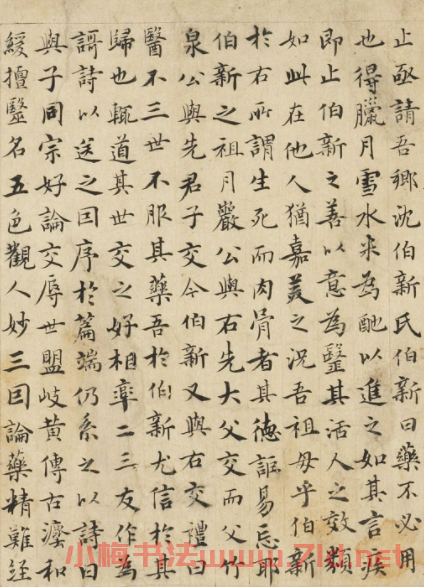 止亟請吾鄉沈伯新氏伯新曰藥不必用
也得臘月雪水来為酏以進之如其言疾
即止伯新之善以意為毉其活人之效類
如此在他人猶嘉羙之况吾祖母乎伯新
於右所謂生死而肉骨者其徳詎易忘耶
伯新之祖月巖公與右先大父交而父竹
泉公與先君子交今伯新又與右交禮曰
醫不三世不服其藥吾於伯新尤信於其
歸也輒道其世交之好相率二三友作為
謌詩以送之囙序於篇端仍系之以詩曰
與子同宗好論交辱世盟岐黄傳古瀍和
緩擅毉名五色觀人妙三囙論藥精難经
小梅书法www.7lw.net